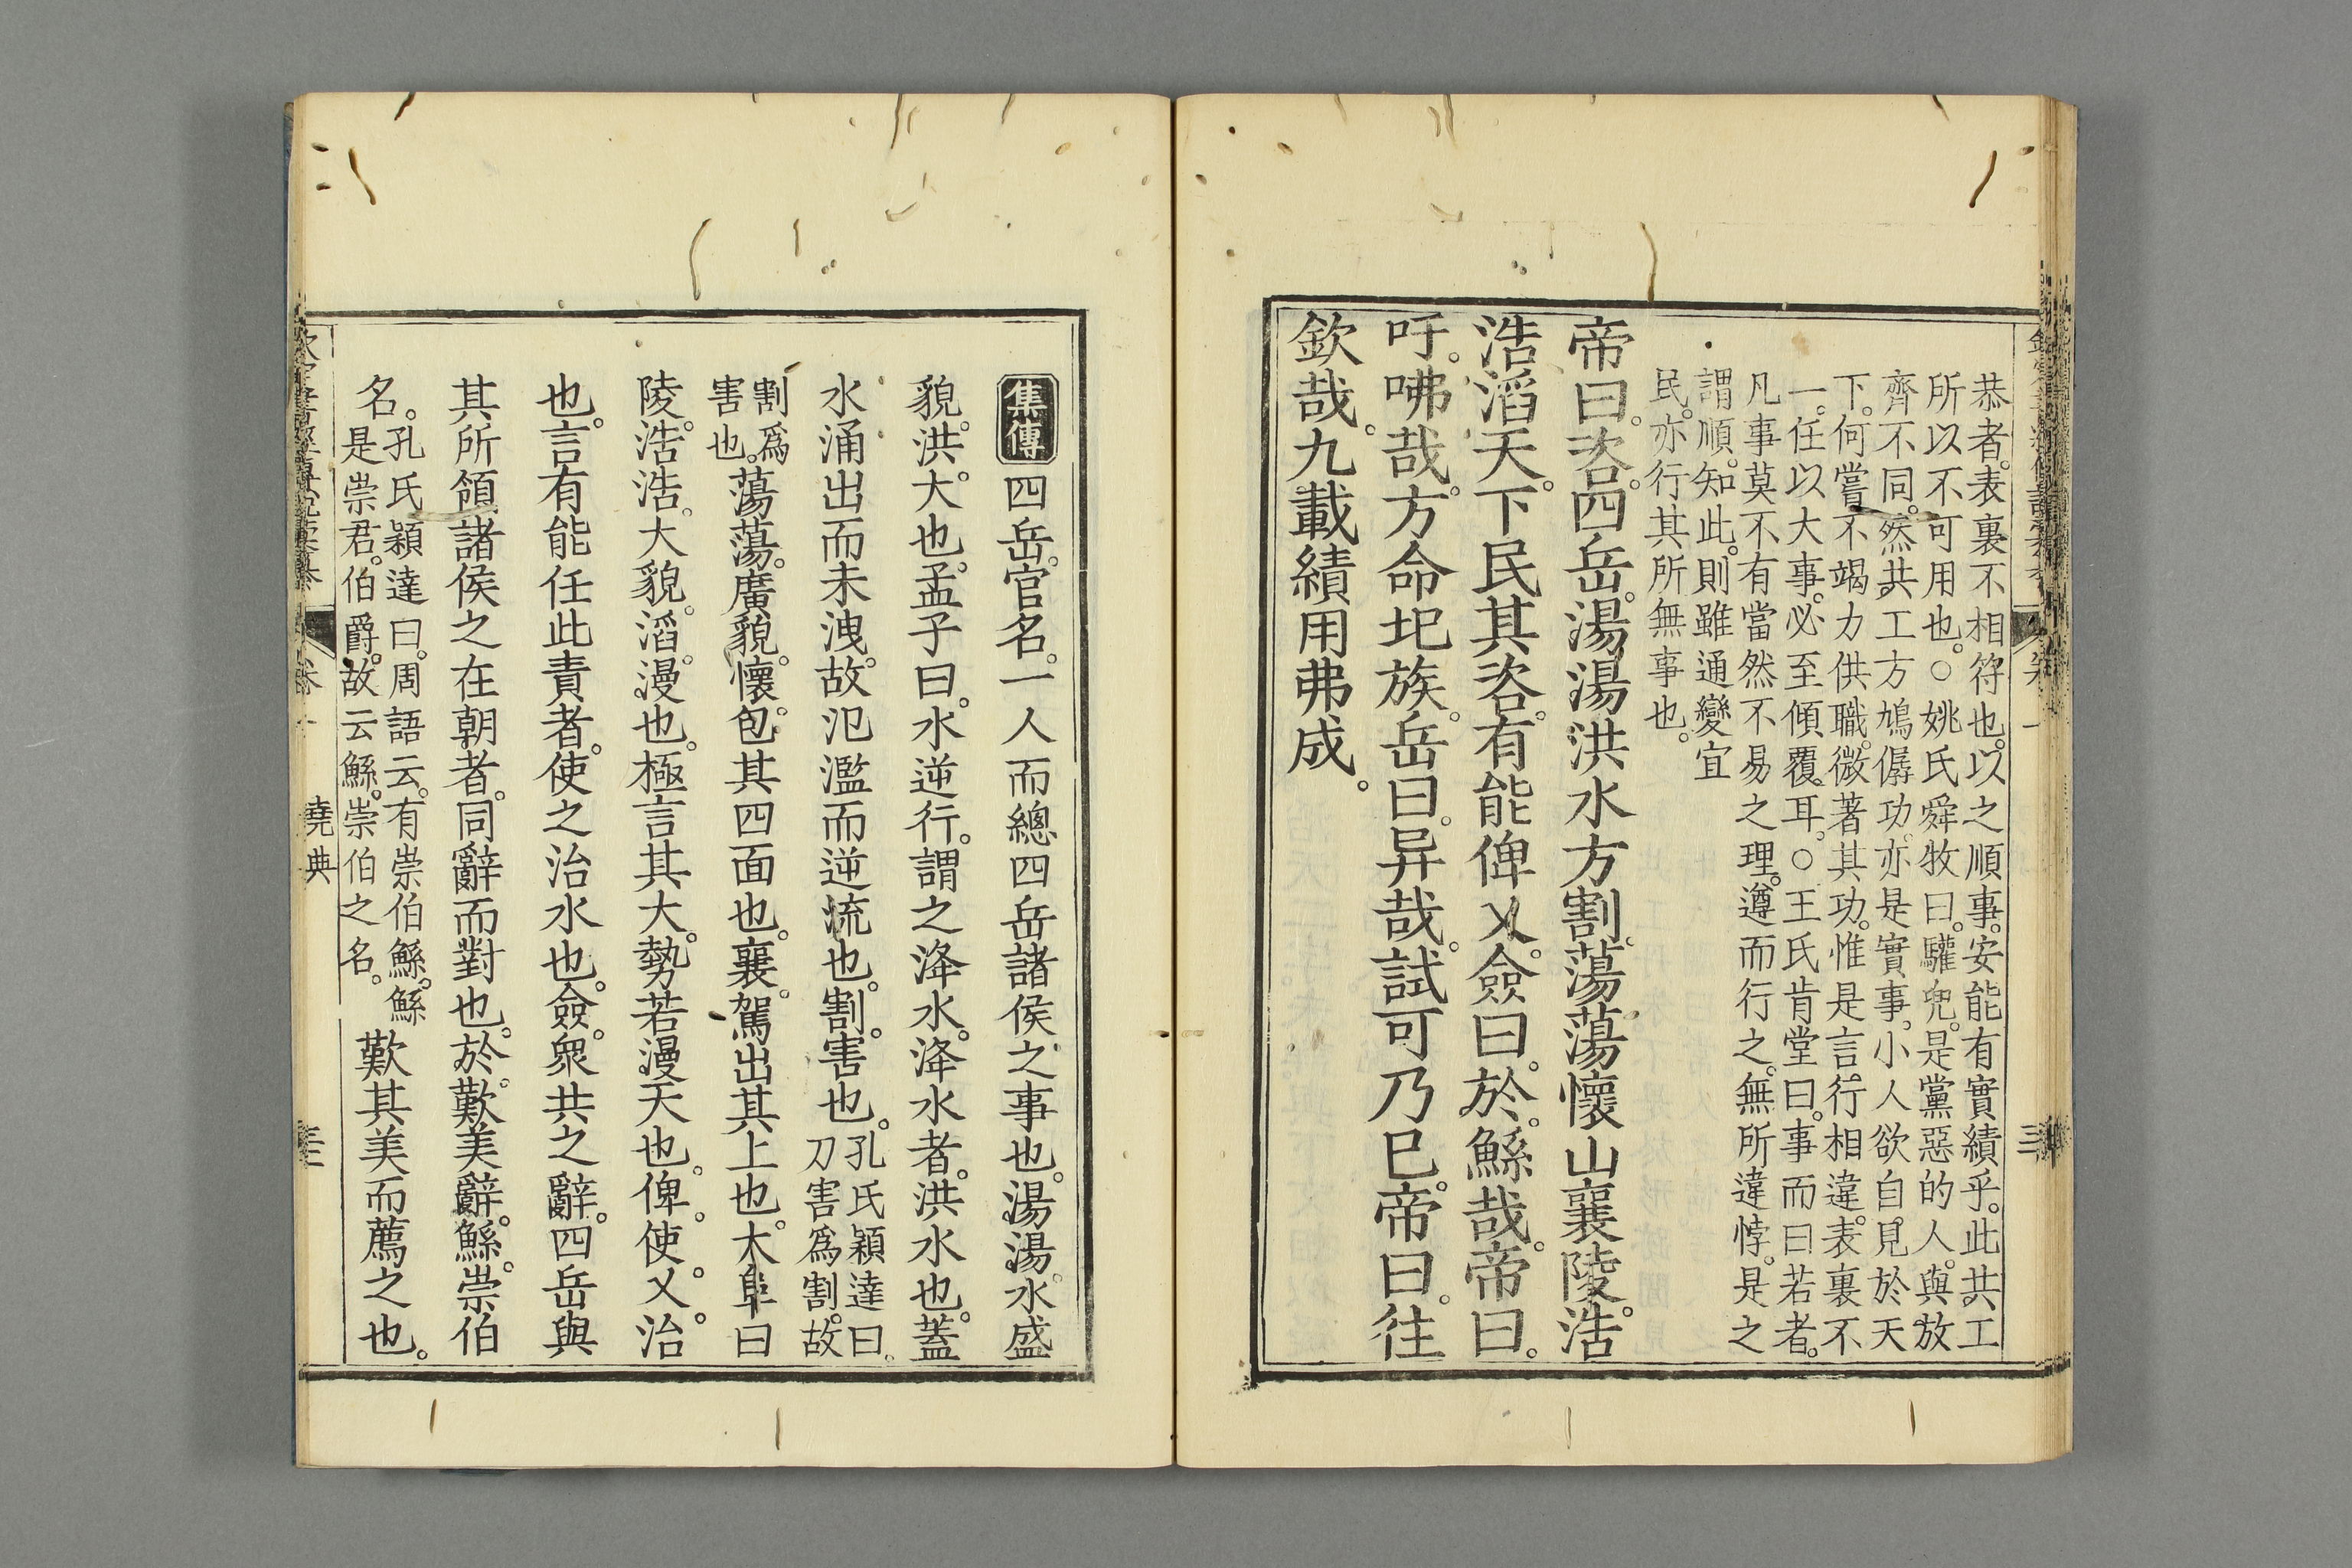 恭者。表裏不相符也。以之順事。安能有實績乎。此共工
所以不可用也。○姚氏舜牧曰。驩兜。是黨惡的人。與放
齊不同。然共工方鳩僝功。亦是實事。小人欲自見於天
下。何嘗不竭力供職。微著其功。惟是言行相違。表裏不
一。任以大事。必至傾覆耳。○王氏肯堂曰。事而曰若者。
凡事莫不有當然不易之理。遵而行之。無所違悖。是之
謂順。知此。則雖通變宜
民。亦行其所無事也。
帝曰。咨。四岳。湯湯洪水方割。蕩蕩懷山襄陵。浩
浩滔天。下民其咨。有能俾乂。僉曰。於。鯀哉。帝曰。
吁。咈哉。方命圯族。岳曰。异哉。試可乃巳。帝曰。往
欽哉。九載績用弗成。
集傳 四岳。官名。一人而總四岳諸侯之事也。湯湯。水盛
貌。洪。大也。孟子曰。水逆行。謂之洚水。洚水者。洪水也。蓋
水涌出而未洩。故汜濫而逆流也。割。害也。孔氏穎達曰。刀害爲割。故
割爲害也。蕩蕩。廣貌。懷。包其四面也。襄。駕出其上也。大阜曰
陵。浩浩。大貌。滔。漫也。極言其大。勢若漫天也。俾。使。乂。治
也。言有能任此責者。使之治水也。僉。衆共之辭。四岳與
其所領諸侯之在朝者。同辭而對也。於。歎美辭。鯀。崇伯
名。孔氏穎達曰。周語云。有崇伯鯀。鯀是崇君。伯爵。故云鯀。崇伯之名。歎其美而薦之也。
堯典